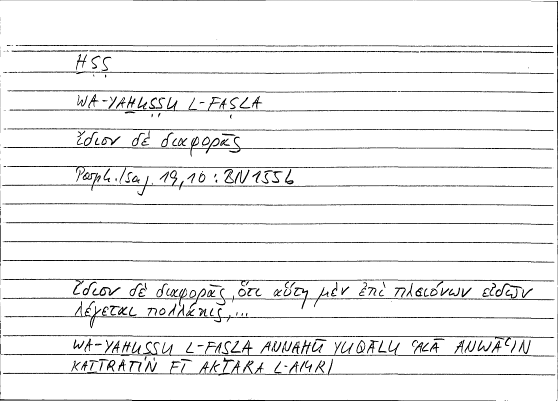 ḤṢṢ
WA-YAḤUṢṢU L-FAṢLA
ἴδιον δὲ διαφορᾶς
Porph. Isag. 19,10 : BN 155b
ἴδιον δὲ διαφορᾶς, ὅτι αὕτη μὲν ἐπὶ πλειόνων εἰδῶν
λέγεται πολλάκις,...
WA-YAḤUṢṢU L-FAṢLA ANNAHŪ YUQĀLU ʿALĀ ANWĀʿIN
KAṮĪRATIN FĪ AKṮARA L-AMRI